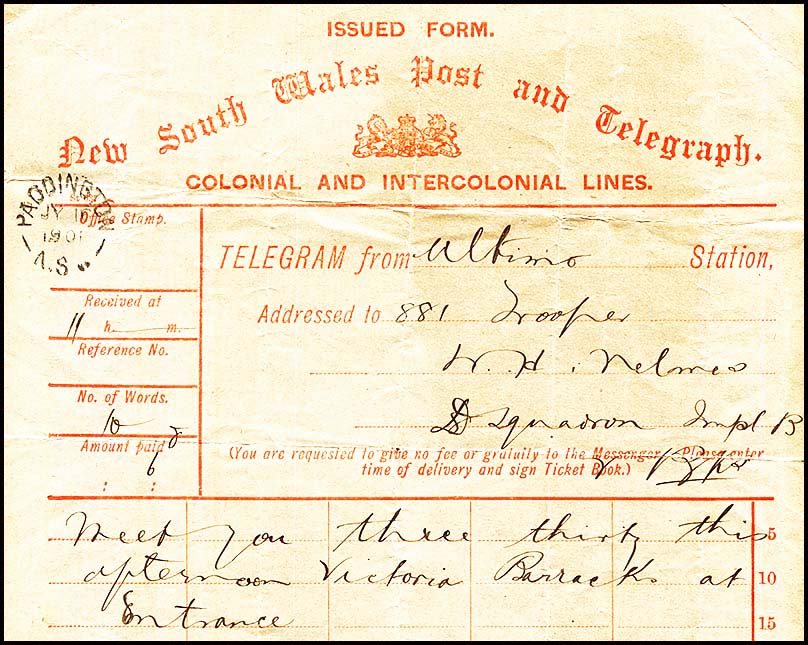 ISSUED FORM.
New South Wales Post and Telegraph.
COLONIAL AND INTERCOLONIAL LINES.
PADDINGTON
JY 16
1901
N.S.
Office Stamp.
TELEGRAM from Ultimo Station,
Received at
11 h. m.
Addressed to 881 Trooper
W. H. Nelmes
D Squadron Impl B
Reference No.
No. of Words.
10
Amount paid
6
: :
(You are requested to give no fee or gratuity to the Messenger. Please enter
time of delivery and sign Ticket Book.)
Meet you three thirty this 5
afternoon Victoria Barracks at 10
Entrance 15